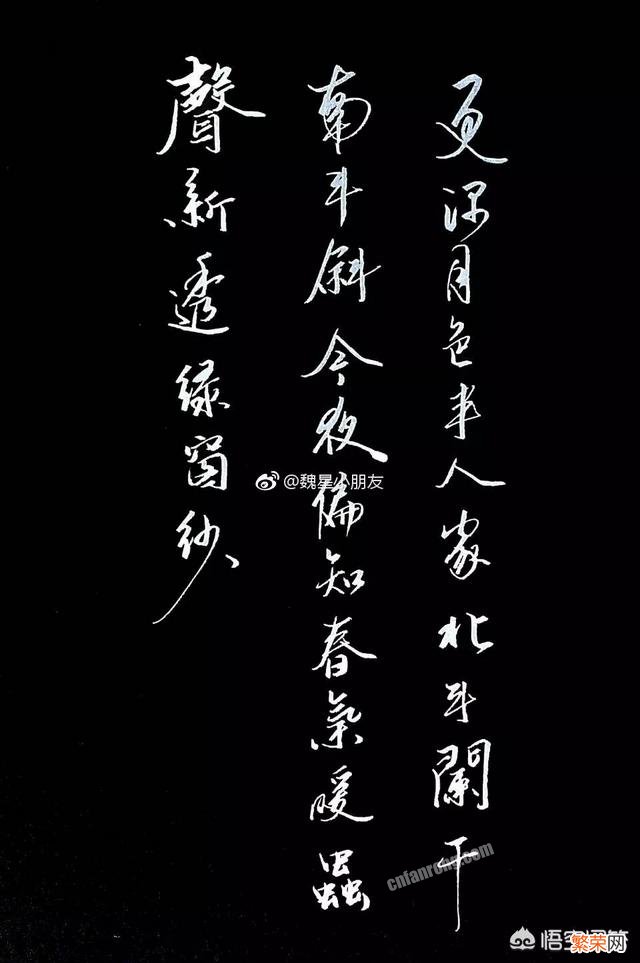 更深月色半人家北斗闌干
南斗斜今夜偏知春氣暖蟲
聲新透綠窗紗
@魏星小朋友
cnfanrong.com
悟空問答
繁荣网